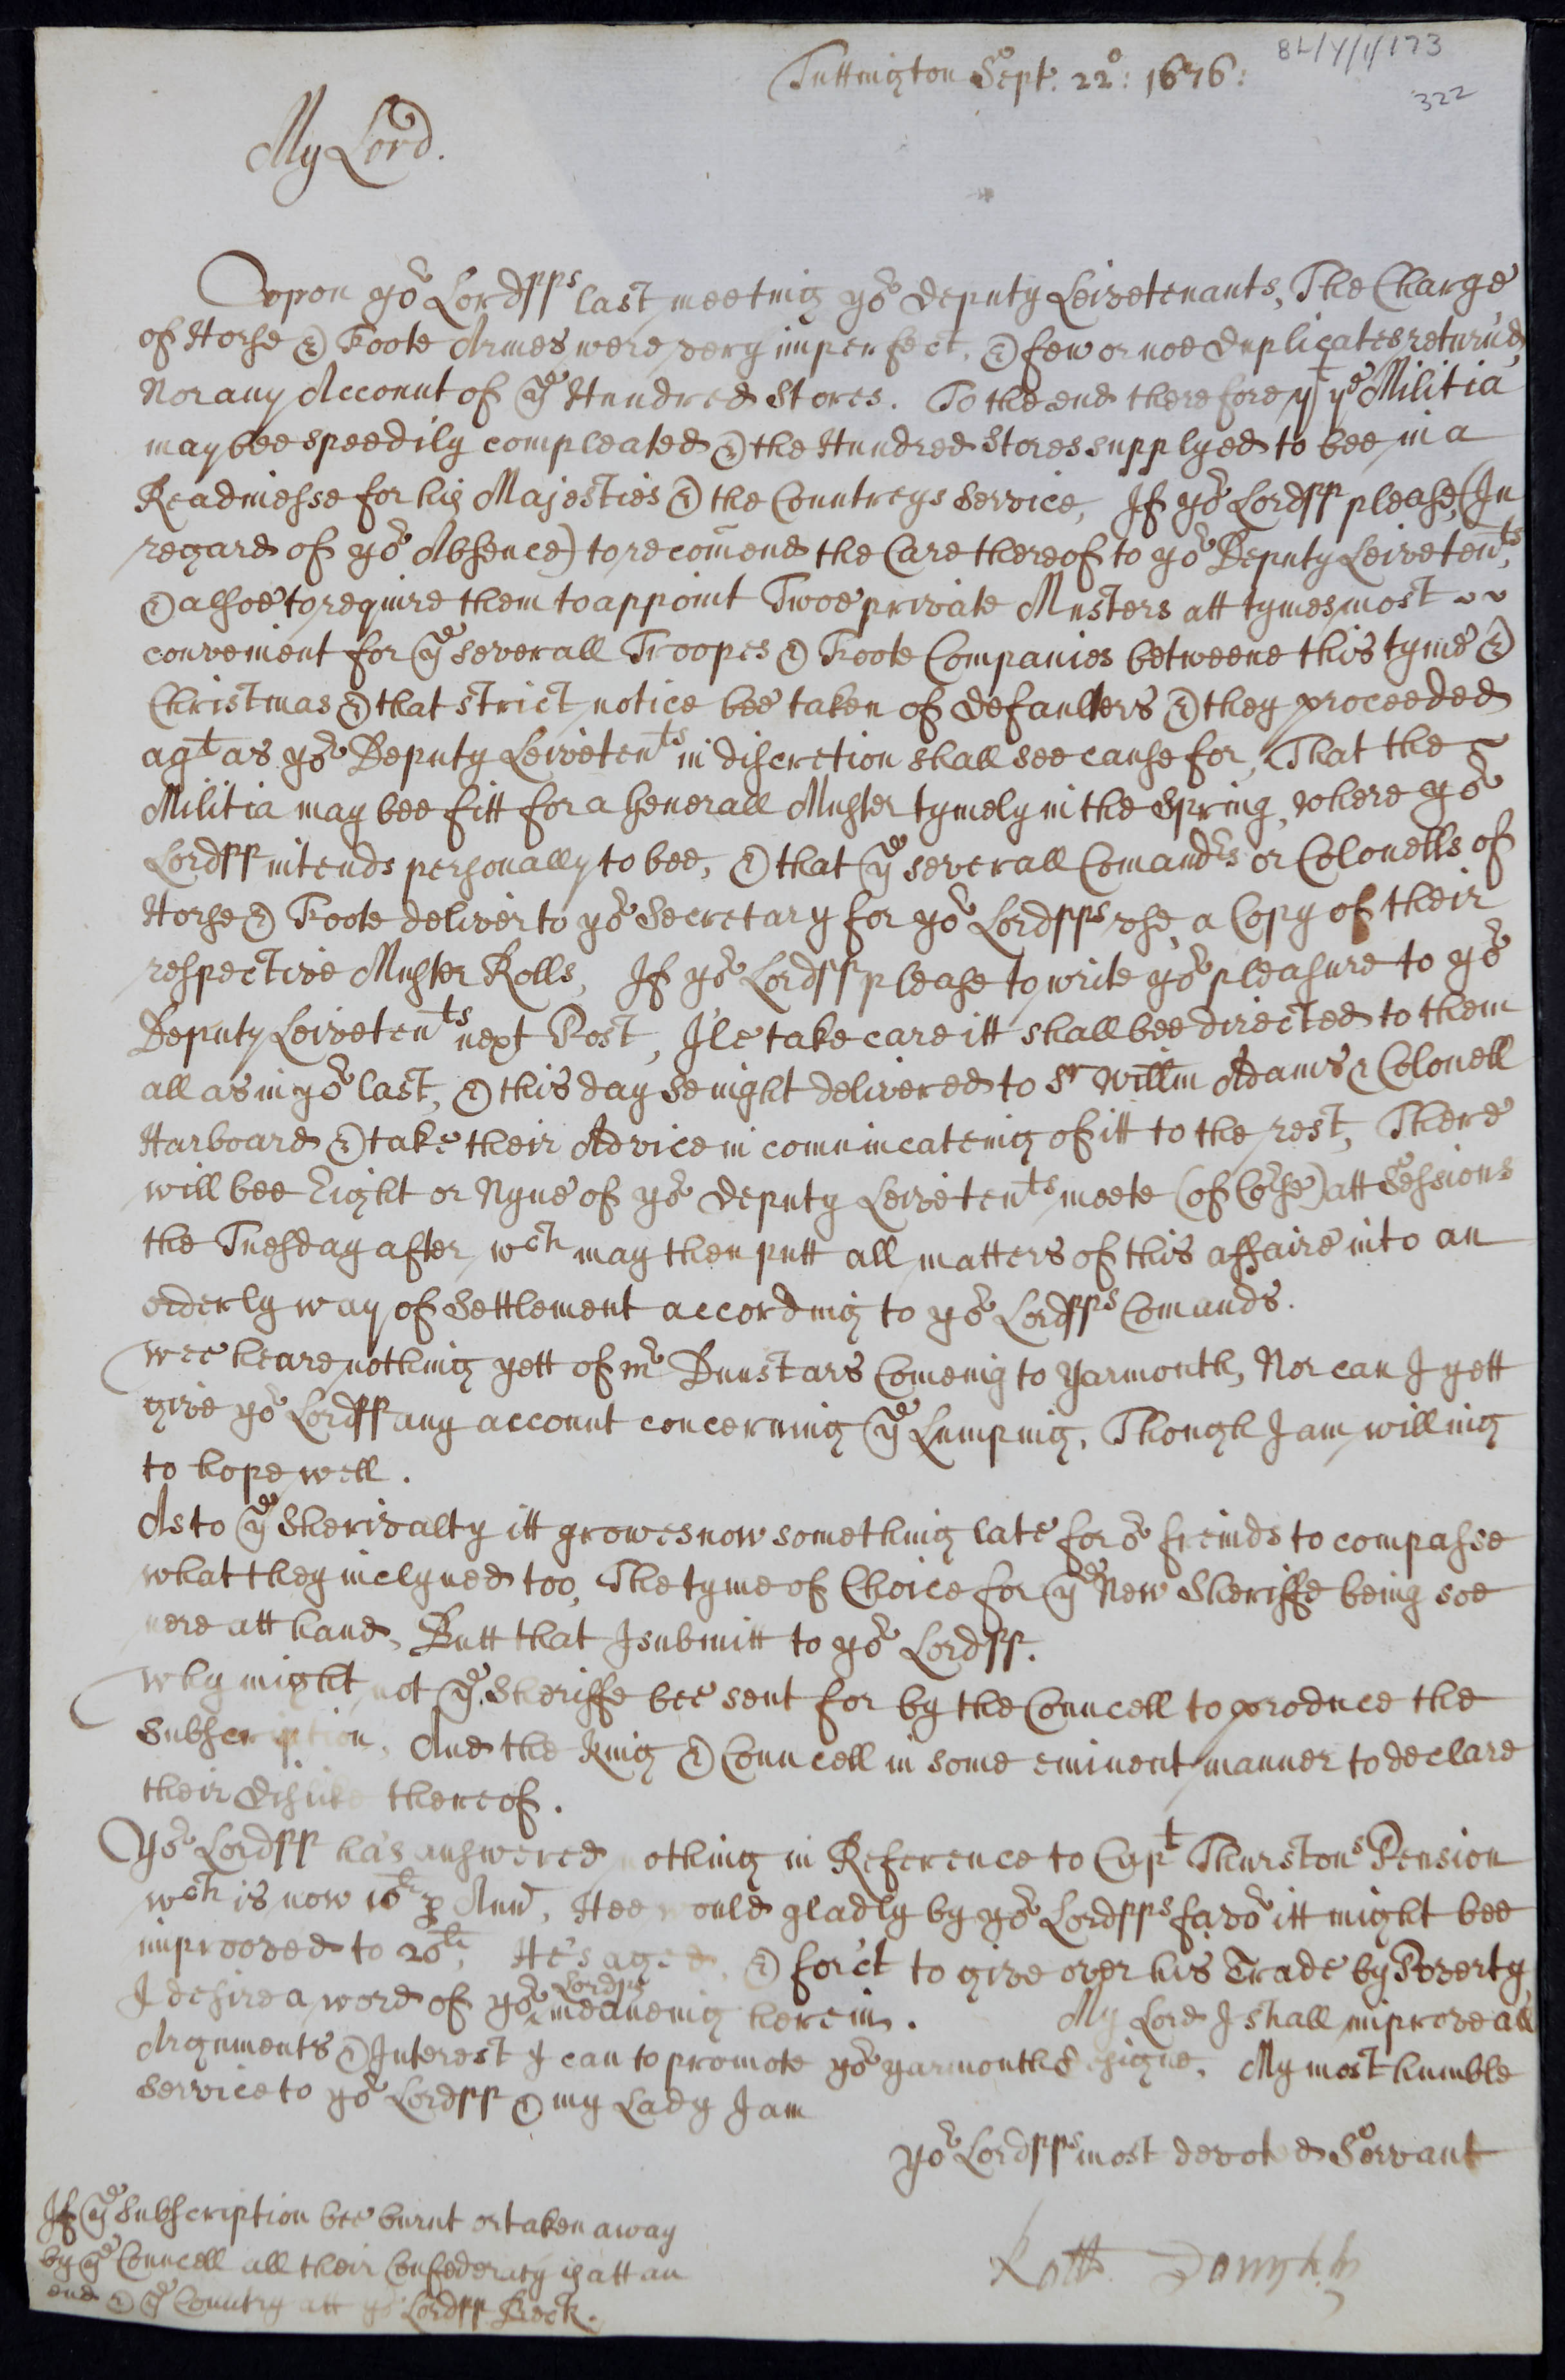 BL/Y/1/173
322
Tuttington Sept. 22º: 1676:
My Lord.
Vpon yoʳ Lordpps last meeting yoʳ Deputy Leivetenants, The Charge
of Horse & Foote Armes were very imperfect, & few or noe Duplicates returnd,
Nor any Account of yᵉ Hundred Stores. To the end therefore yᵗ yᵉ Militia
may bee speedily compleated & the Hundred stores supplyed to bee in a
Readinesse for his Majesties & the Countreys Service, If yoʳ Lordpp please, (In
regard of yoʳ Absence) to recom̄end the Care thereof to yoʳ Deputy Leivetenᵗˢ,
& alsoe to require them to appoint Twoe private Musters att tymes most ~ ~
convenient for yᵉ severall Troopes & Foote Companies betweene this tyme &
Christmas & that strict notice bee taken of defaulters & they proceeded
agᵗ as yoʳ Deputy Leivetenᵗˢ in discretion shall see cause for, That the ~
Militia may bee fitt for a Generall Muster tymely in the Spring, where yoʳ
Lordpp intends personally to bee, & that yᵉ severall Comandʳˢ or Colonells of
Horse & Foote deliver to yoʳ Secretary for yoʳ Lordpps vse, a Copy of their
respective Muster Rolls, If yoʳ Lordpp please to write yoʳ pleasure to yoʳ
Deputy Leivetenᵗˢ next Post, I'le take care itt shall bee directed to them
all as in yoʳ last, & this day senight delivered to Sʳ Willm Adams & Colonell
Harboard & take their Advice in comunicateing of itt to the rest, There
will bee Eight or Nyne of yoʳ Deputy Leivetenᵗˢ meete (of Coʳse) att Sessions
the Tuesday after, wᶜʰ may then putt all matters of this affaire into an
orderly way of Settlement according to yoʳ Lordpps Comands.
Wee heare nothing yett of mʳ Dunstars Comeing to Yarmouth, Nor can I yett
give yoʳ Lordpp any account concerning yᵉ Lumping, Though I am willing
to hope well.
As to yᵉ Sherivalty itt growes now something late for oʳ freinds to compasse
what they inclyned too, The tyme of Choice for yᵉ New Sheriffe being soe
nere att hand, Butt that I submitt to yoʳ Lordpp.
Why might not yᵉ Sheriffe bee sent for by the Councell to produce the
Subscription, And the King & Councell in some eminent manner to declare
their dislike thereof.
Yoʳ Lordpp ha's answered nothing in Reference to Capᵗ Thurstons Pension
wᶜʰ is now 10ˡⁱ p Ann̄, Hee would gladly by yoʳ Lordpps favoʳ itt might bee
improoved to 20ˡⁱ, He's aged, & forc't to give over his Trade by Poverty,
I desire a word of yoʳ Lordps meaneing herein. My Lord I shall improve all
Arguments & Interest I can to promote yoʳ Yarmouth designe, My most humble
service to yoʳ Lordpp & my Lady I am
yoʳ Lordpps most devoted Servant
If yᵉ Subscription bee burnt or taken away
by yᵉ Councell all their Confederacy is att an
end & yᵉ Country att yoʳ Lordpp Beck.